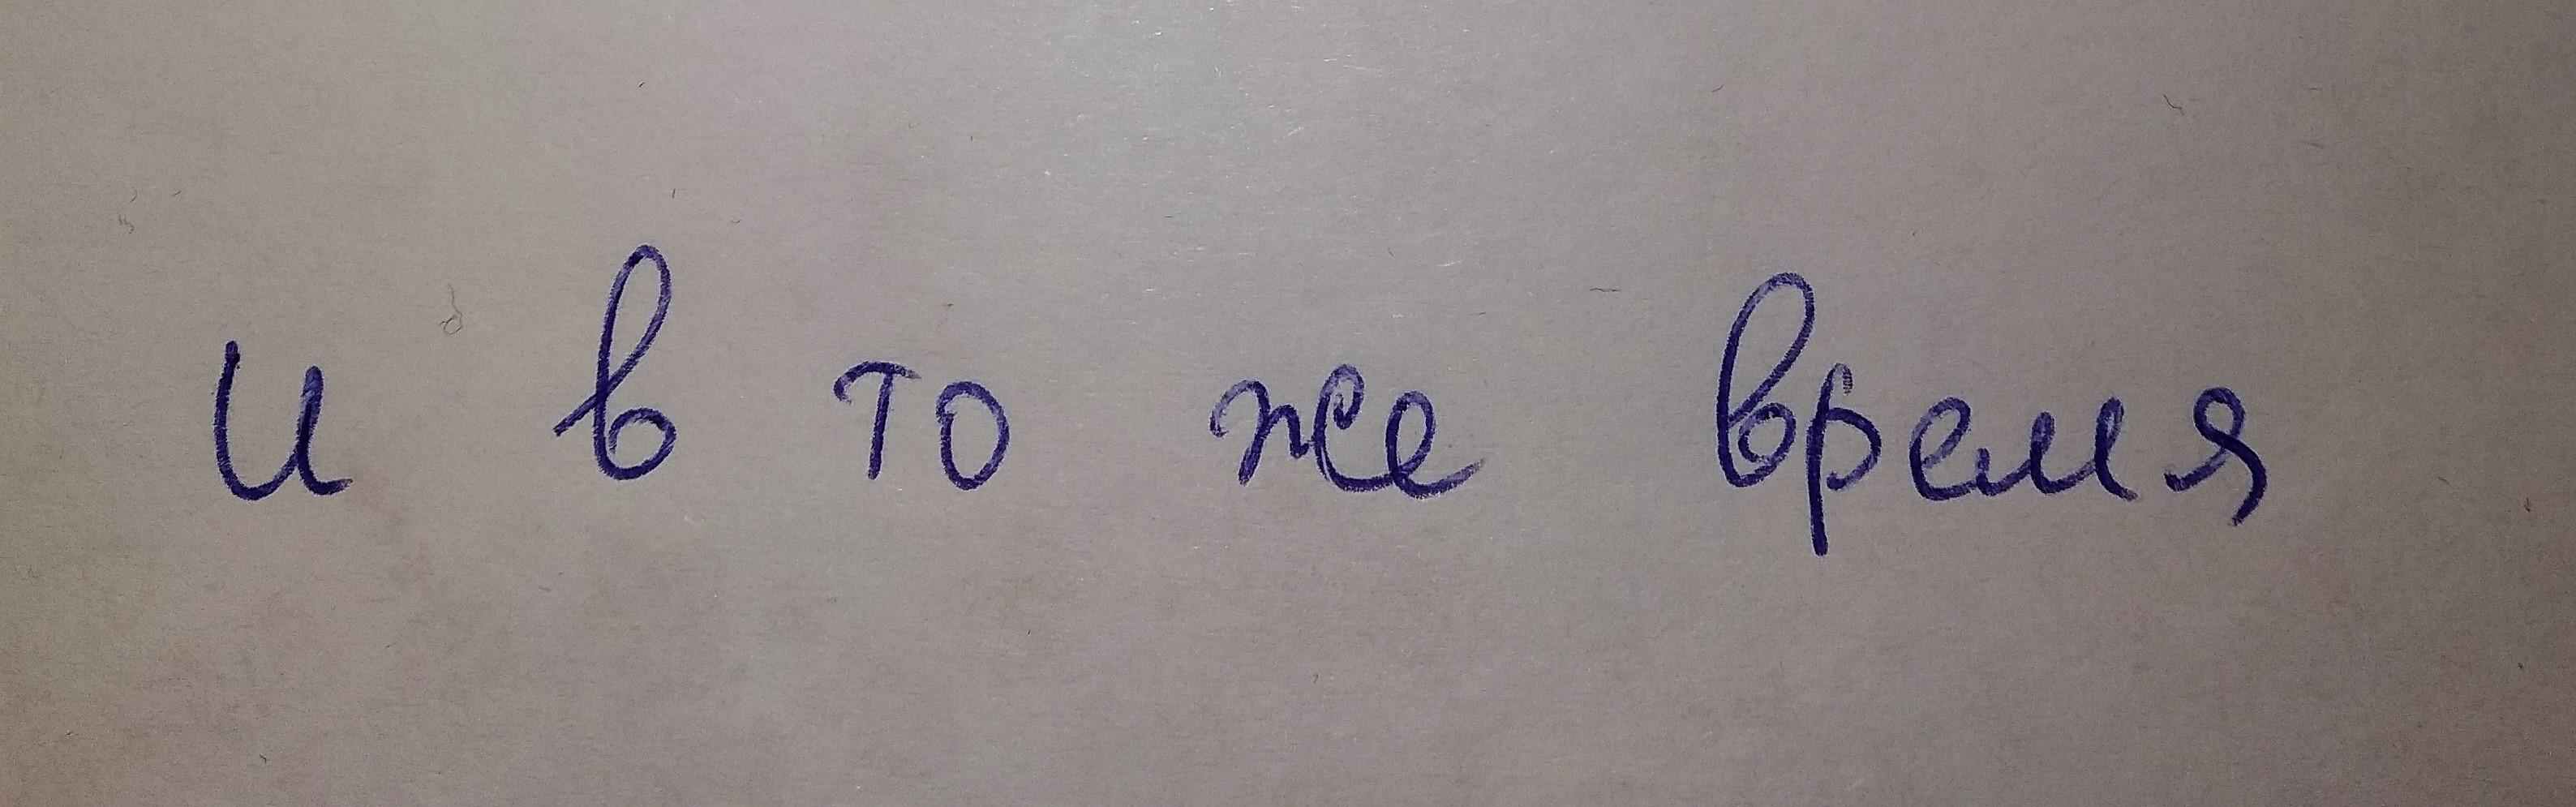 и в то же время